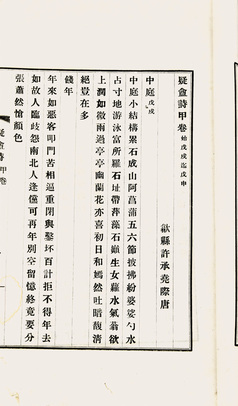 疑盦詩甲卷 始戊戌迄戊申
歙縣許承堯際唐
中庭 戊戌
中庭小結構累石成山阿菖蒲五六節披拂紛婆娑勺水
占寸地游泳富所羅石址帶萍藻石巔生女蘿水氣蓊欲
上潤如微雨過亭亭幽蘭花亦喜初日和嫣然吐暗馥清
絕豈在多
餞年
年來如惡客叩門苦相逼重閉與鑿坏百計拒不得年去
如故人臨歧怨南北人逢儻可再年別牢留憶終竟要分
張蕭然愴顏色
疑盦詩甲卷